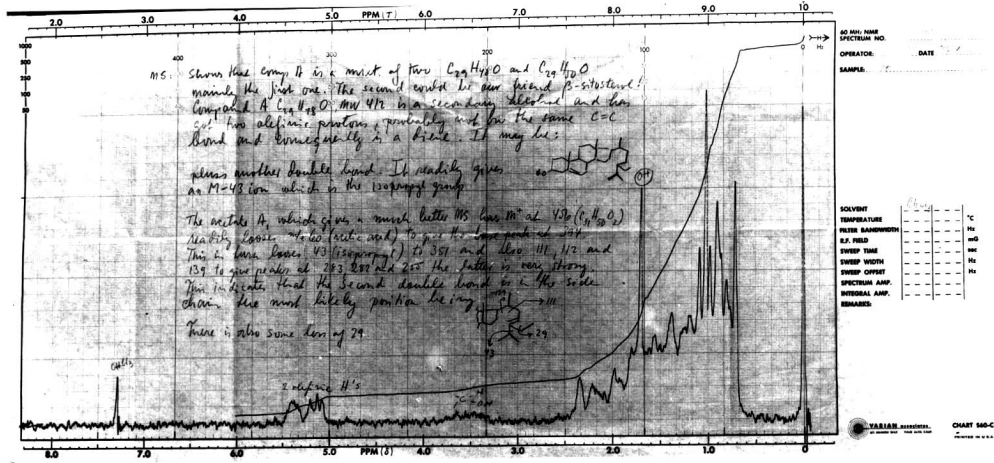 2.0 3.0 4.0 5.0 PPM (τ) 6.0 7.0 8.0 9.0 10
1000
500
250
100
50
400 300 200 100 0 Hz
H
60 MHz NMR
SPECTRUM NO.
OPERATOR: DATE
SAMPLE:
MS: Shows that comp A is a mixt. of two C29H48O and C29H50O
mainly the first one. The second could be our friend β-sitosterol!
Compound A C29H48O MW 412 is a secondary alcohol and has
got two olefinic protons, probably not on the same C=C
bond and consequently is a diene. It may be:
HO
plus another double bond. It readily gives
an M-43 ion which is the isopropyl group
OH
The acetate A, which gives a much better MS has M+ at 454
readily looses 60 (acetic acid) to give the base peak at 394
This in turn looses 43 (isopropyl) to 351 and also 111, 112 and
139 to give peaks at 283, 282 and 255 the latter is very strong.
This indicates that the second double bond is in the side
chain the most likely position being
111
29
There is also some loss of 29
CHCl3
2 olefinic H's
SOLVENT
TEMPERATURE °C
FILTER BANDWIDTH Hz
R.F. FIELD mG
SWEEP TIME sec
SWEEP WIDTH Hz
SWEEP OFFSET Hz
SPECTRUM AMP.
INTEGRAL AMP.
REMARKS:
8.0 7.0 6.0 5.0 PPM (δ) 4.0 3.0 2.0 1.0 0
VARIAN associates
CHART S60-C
PRINTED IN U.S.A.